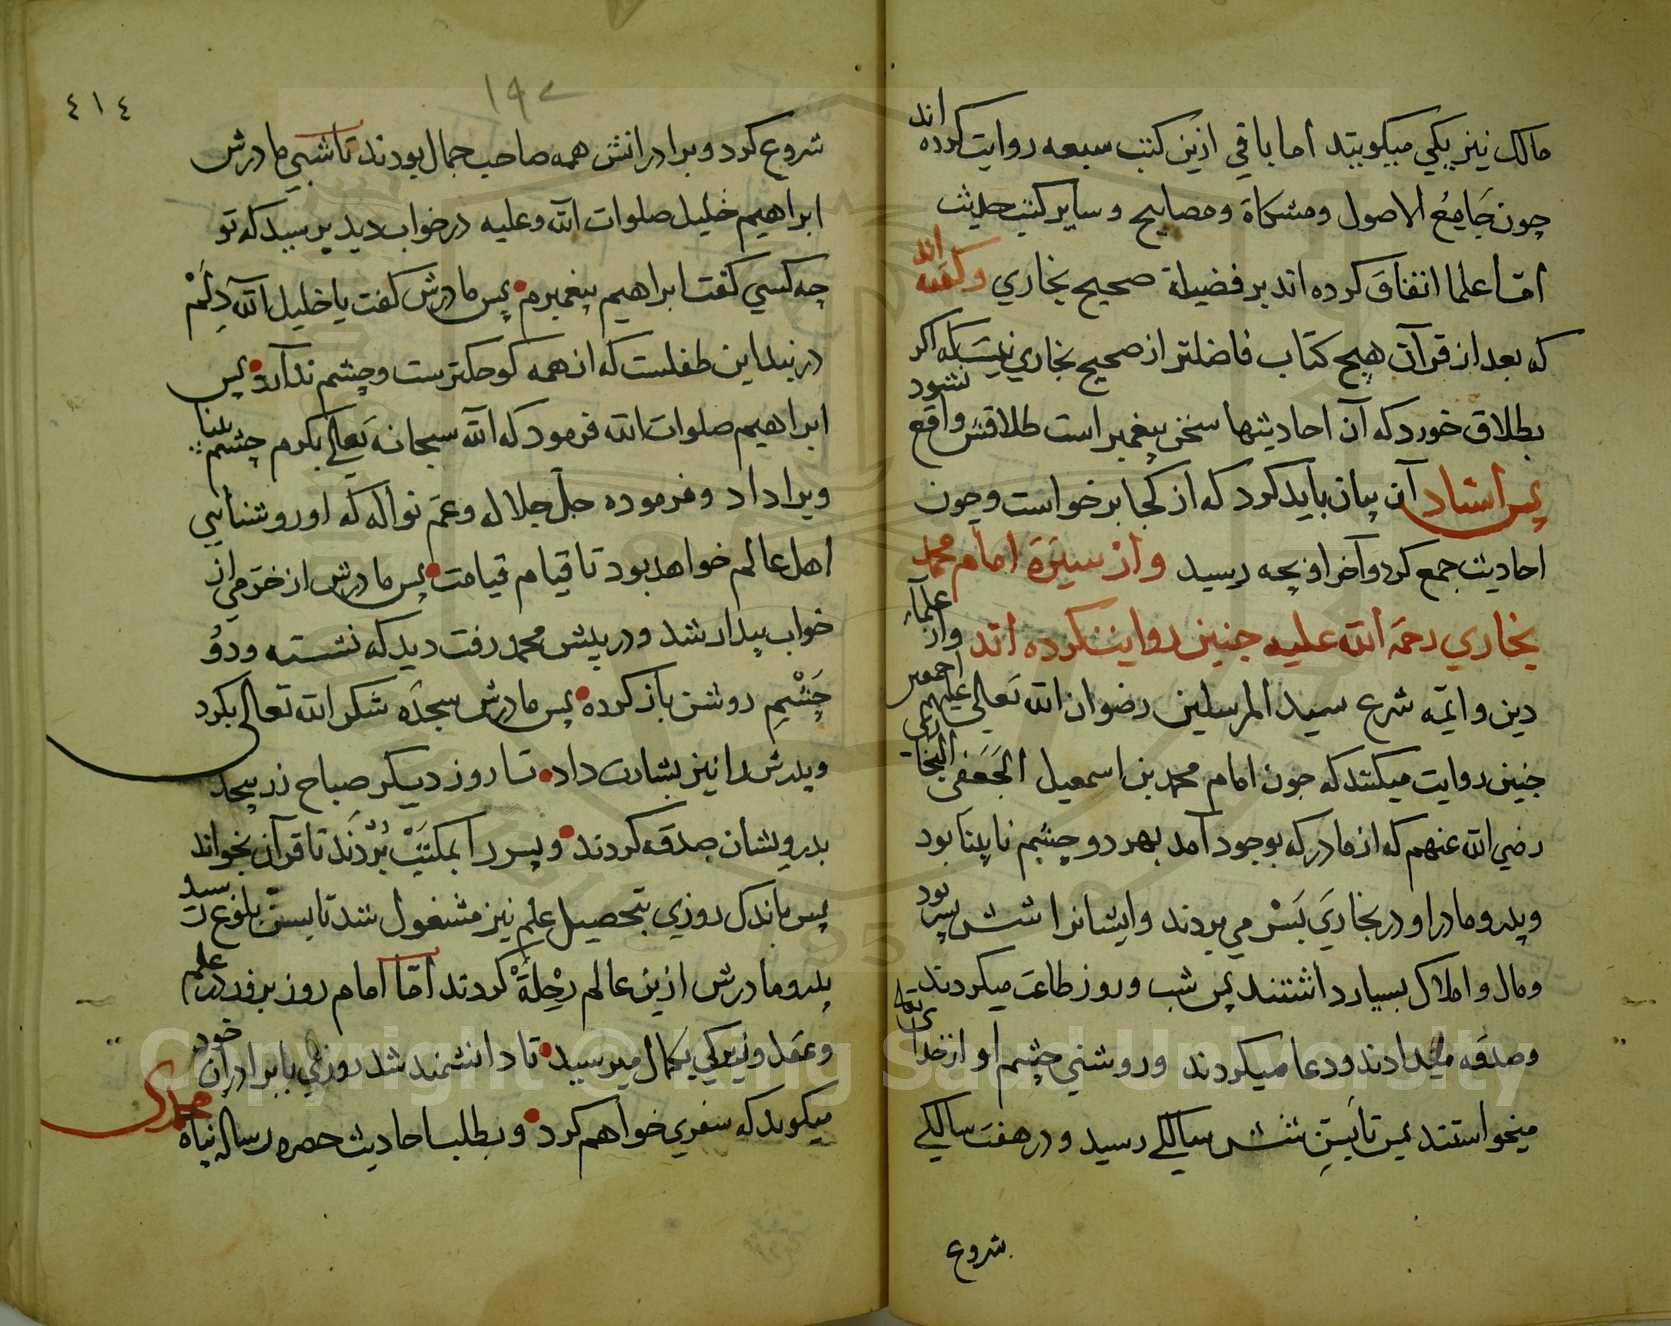 مالك نيز يكي ميكويند اما باقي ازين كتب سبعه روايت كرده اند
چون جَامِعُ الاصول ومشكاة ومصابيح وساير كتب حديث
امّا علما اتفاق كرده اند بر فضيلة صحيح بخاري وكفته اند
كه بعد از قرآن هيچ كتاب فاضلتر از صحيح بخاري نيست كه اكر
بطلاق خورد كه آن احاديثها سخن پيغمبر است طلاقش واقع نشود
پس استاد آن بيان بايد كرد كه از كجا برخواست وچون
احاديث جمع كرد وآخر او بچه رسيد واز سيرَة امام محمد
بخاري رحمة الله عليه چنين روايت كرده اند واز علماء
دين وايمّه شرع سيد المرسلين رضوان الله تعالي عليهم اجمعين
چنين روايت ميكنند كه چون امام محمد بن اسمعيل الجَعَفى البخاري
رضي الله عنهم كه از مادر كه بوجود آمد بهر دو چشم نابينا بود
وپدر ومادر او در بخاريَ بَسْر مي بردند وايشانرا شش پسر بود
ومال واملاك بسيار داشتند پس شب وروز طاعت ميكردند
وصدقه ميدادند ودعا ميكردند وروشني چشم او از خداي تعالي
ميخواستند پس تا بسِنّ شش سيالكي رسيد ودر هفت سالكي
شروع
٤١٤
١٩٧
شروع كرد وبرادرانش همه صاحب جمال بودند تا شبي مادرش
ابراهيم خليل صلوات الله وعليه در خواب ديد پرسيد كه تو
چه كسي كفت ابراهيم پيغمبرم پس مادرش كفت يا خليل الله دِلَمْ
دربند اين طفلست كه از همه كوچكترست وچشم ندارد پس
ابراهيم صلوات الله فرمود كه الله سبحانه تَعالي بكرم چشم بينا
ويرا داد وفرموده جل جلاله وعَم نواله كه او روشنايي
اهل عالم خواهد بود تا قيام قيامت پس مادرش از خرّمي از
خواب بيدار شد ودر پيش محمد رفت ديد كه نشسته ودوُ
چَشْمِ روشن باز كرده پس مادرش سجده شكر الله تعالى بكرد
وپدرش را نيز بشارت داد تا روز ديكر صباح زر بيحد
بدرويشان صدقه كردند وپسر را بمكتَبْ بُرْدَند تا قرآن بخواند
پس باندك روزي بتحصيل علم نيز مشغول شد تا بسِنّ بلوغ رسيد
پدر ومادرش ازين عالم رِحْلَةْ كردند امّا امام روز بروز در علم
وعقل وزيركي بكمال ميرسيد تا دانشمند شد روزي با برادران خود
ميكويد كه سفري خواهم كرد وبطلب احاديث حضره رساله پناه محمدي
Copyright © King Saud University